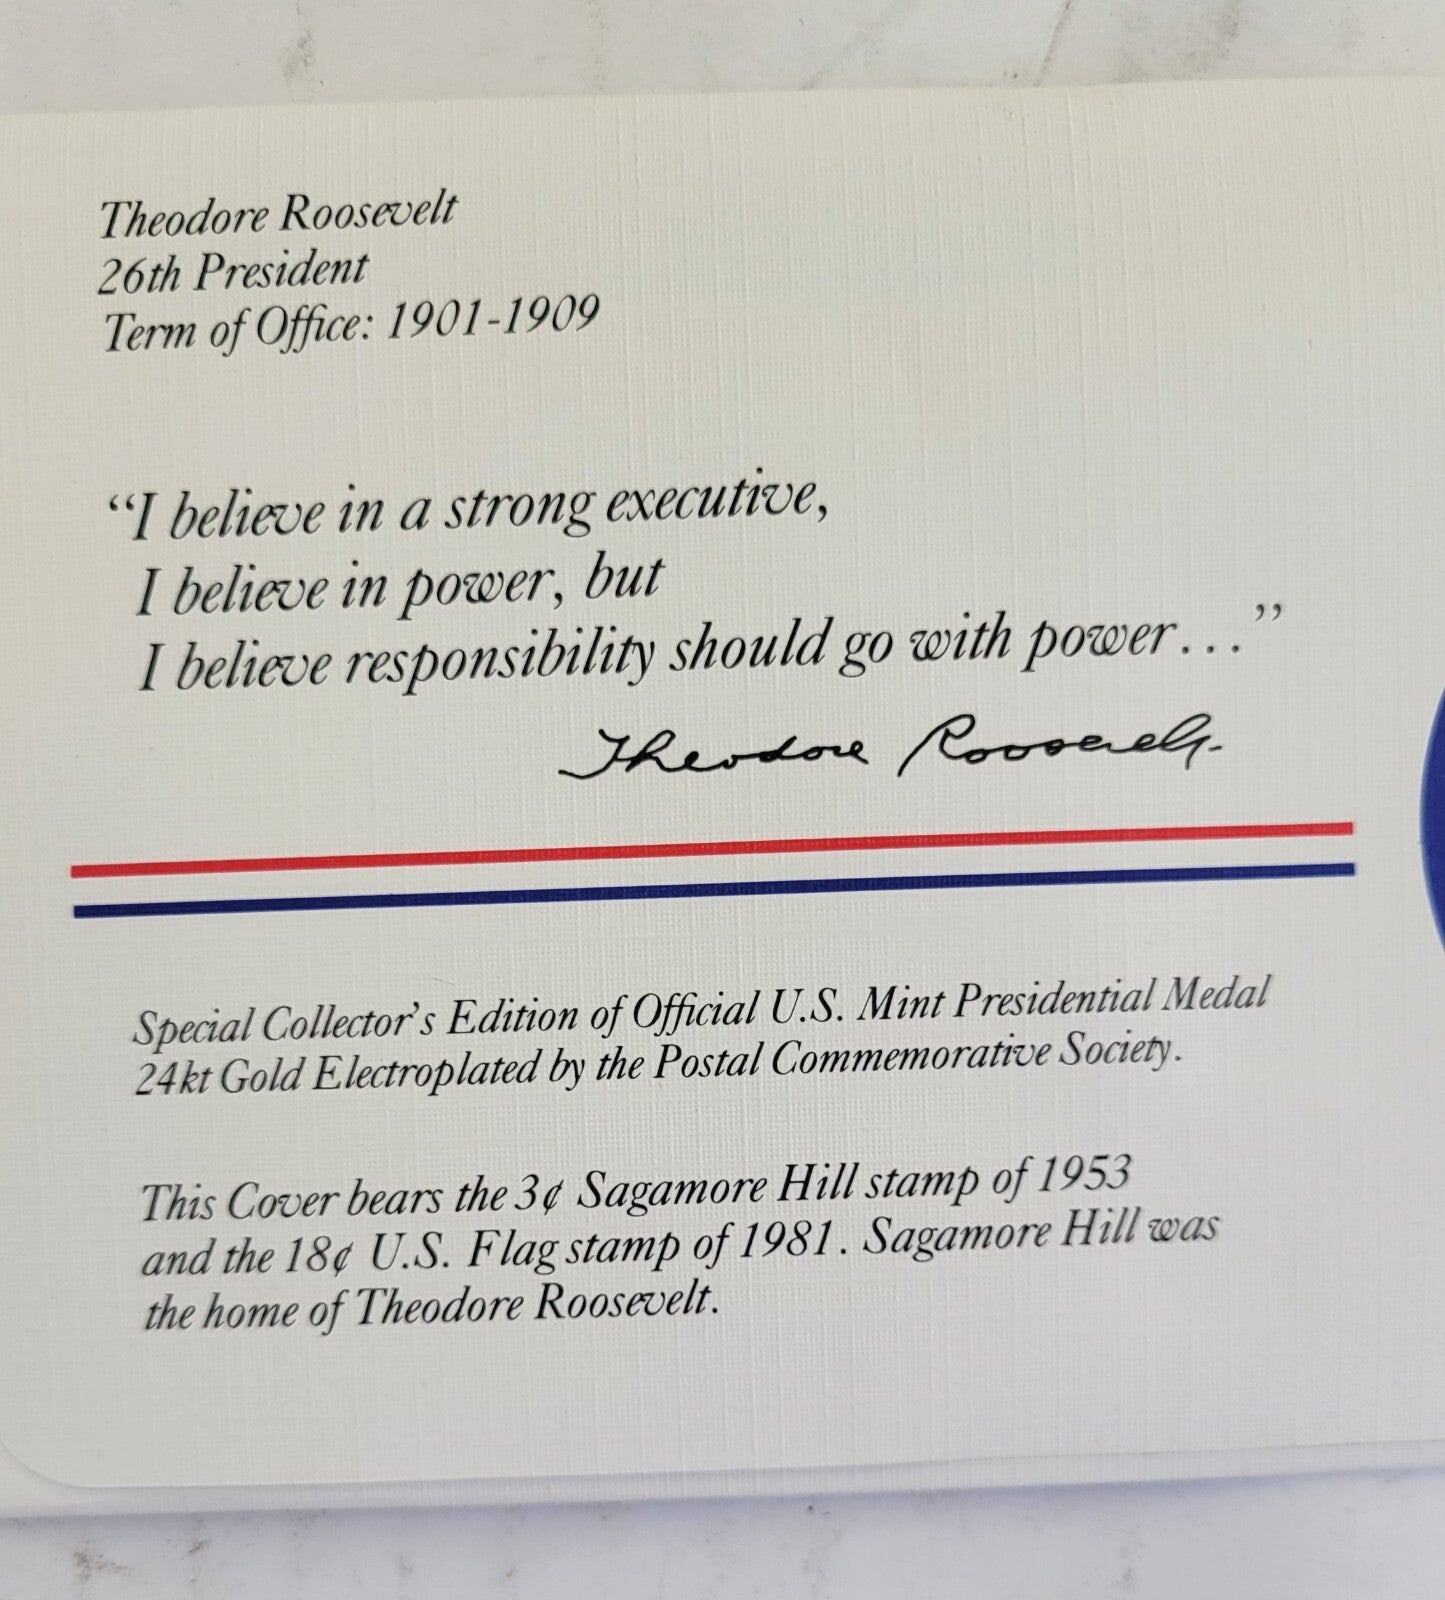 Theodore Roosevelt
26th President
Term of Office: 1901-1909
“I believe in a strong executive,
I believe in power, but
I believe responsibility should go with power...”
Theodore Roosevelt
Special Collector's Edition of Official U.S. Mint Presidential Medal
24kt Gold Electroplated by the Postal Commemorative Society.
This Cover bears the 3¢ Sagamore Hill stamp of 1953
and the 18¢ U.S. Flag stamp of 1981. Sagamore Hill was
the home of Theodore Roosevelt.